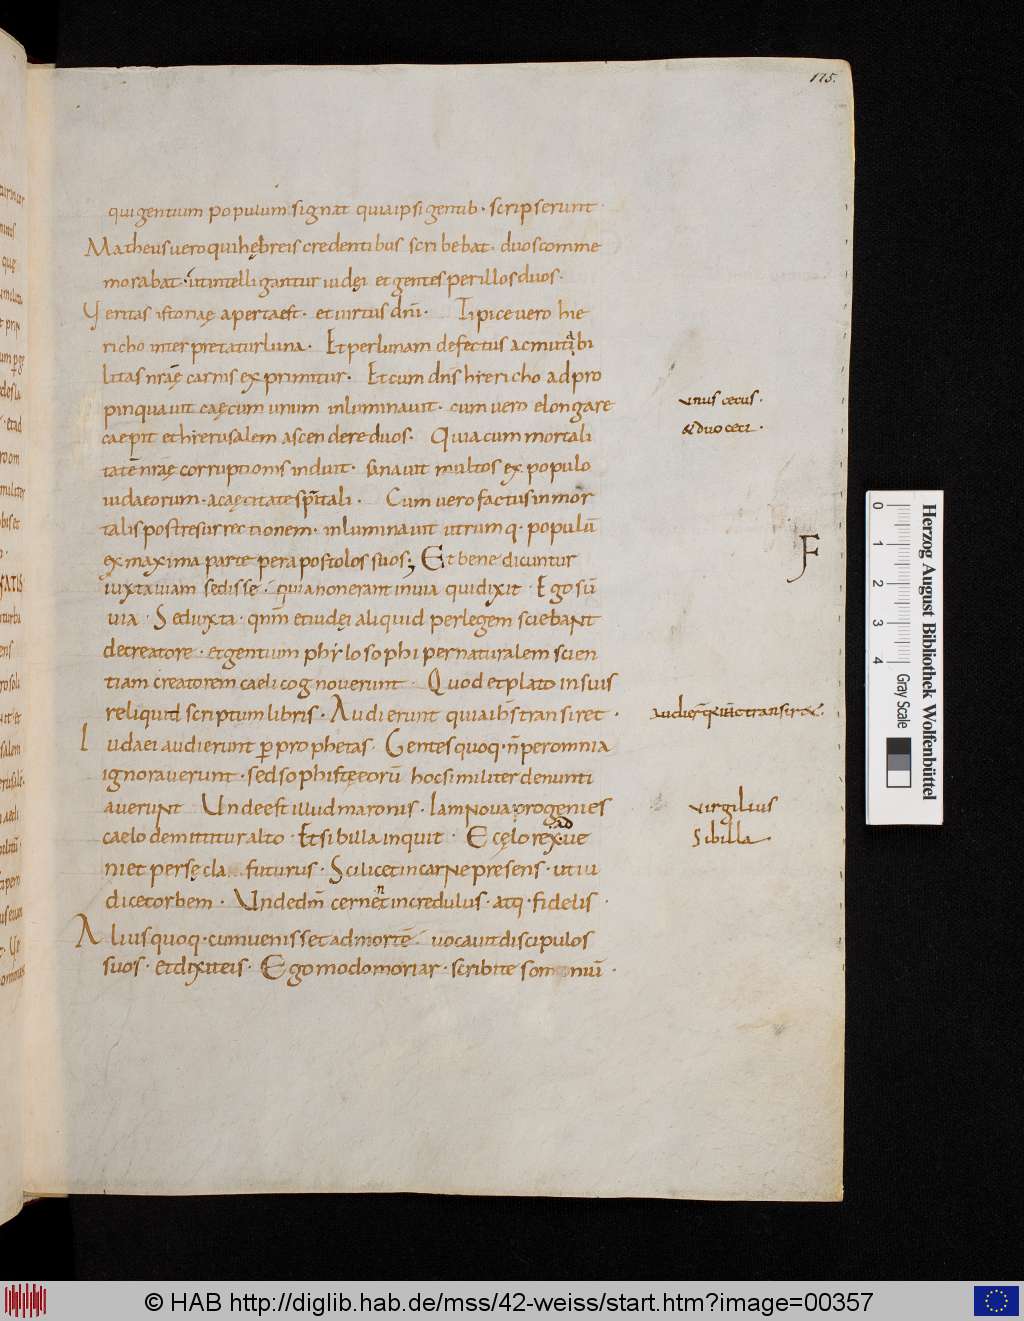 175.
qui gentium populum signat quia ipsi gentib· scripserunt·
Matheus vero qui hębreis credentibus scribebat· duos comme
morabat· ut intelligantur iudęi et gentes per illos duos·
Veritas istoriaę aperta est· et virtus dñi· Tipice vero hie
richo interpretatur luna· Et per lunam defectus ac mutabi
litas nrãę carnis exprimitur· Et cum dñs hiericho adpro
pinquavit caęcum unum inluminavit· cum vero elongare
caepit et hierusalem ascendere duos· Quia cum mortali
tatē nrãę corruptionis induit· sanavit multos ex populo
iudaeorum· a caęcitate spiritali· Cum vero factus inmor
talis post resurrectionem· inluminavit utrumq· populū
ex maxima parte per apostolos suos; Et bene dicuntur
iuxta viam sedisse· quia non erant in via qui dixit· Ego sū
via· Sed iuxta· qnm̄ et iudęi aliquid per legem sciebant
de creatore· et gentium phylosophi per naturalem scien
tiam creatorem caeli cognoverunt· Quod et plato in suis
reliquid scriptum libris· Audierunt quia ih̄s transiret·
Iudaei audierunt p̱ prophetas· Gentes quoq· n̄ per omnia
ignoraverunt· sed sophistę eorū hoc similiter denunti
averunt Unde est illud maronis· Iam nova progenies
caelo demittitur alto· Et sibilla inquit· E cęlo rex adve
niet per sęcla futurus· Scilicet in carne presens· ut iu
dicet orbem· Unde dm̄ cernent incredulus· atq· fidelis·
Alius quoq· cum venisset ad mortē· vocavit discipulos
suos· et dixit eis· Ego modo moriar· scribite somnium·
unus cecus·
& duo ceci·
F
virgilius
Sibilla
Herzog August Bibliothek Wolfenbüttel
0 1 2 3 4
Gray Scale
© HAB http://diglib.hab.de/mss/42-weiss/start.htm?image=00357